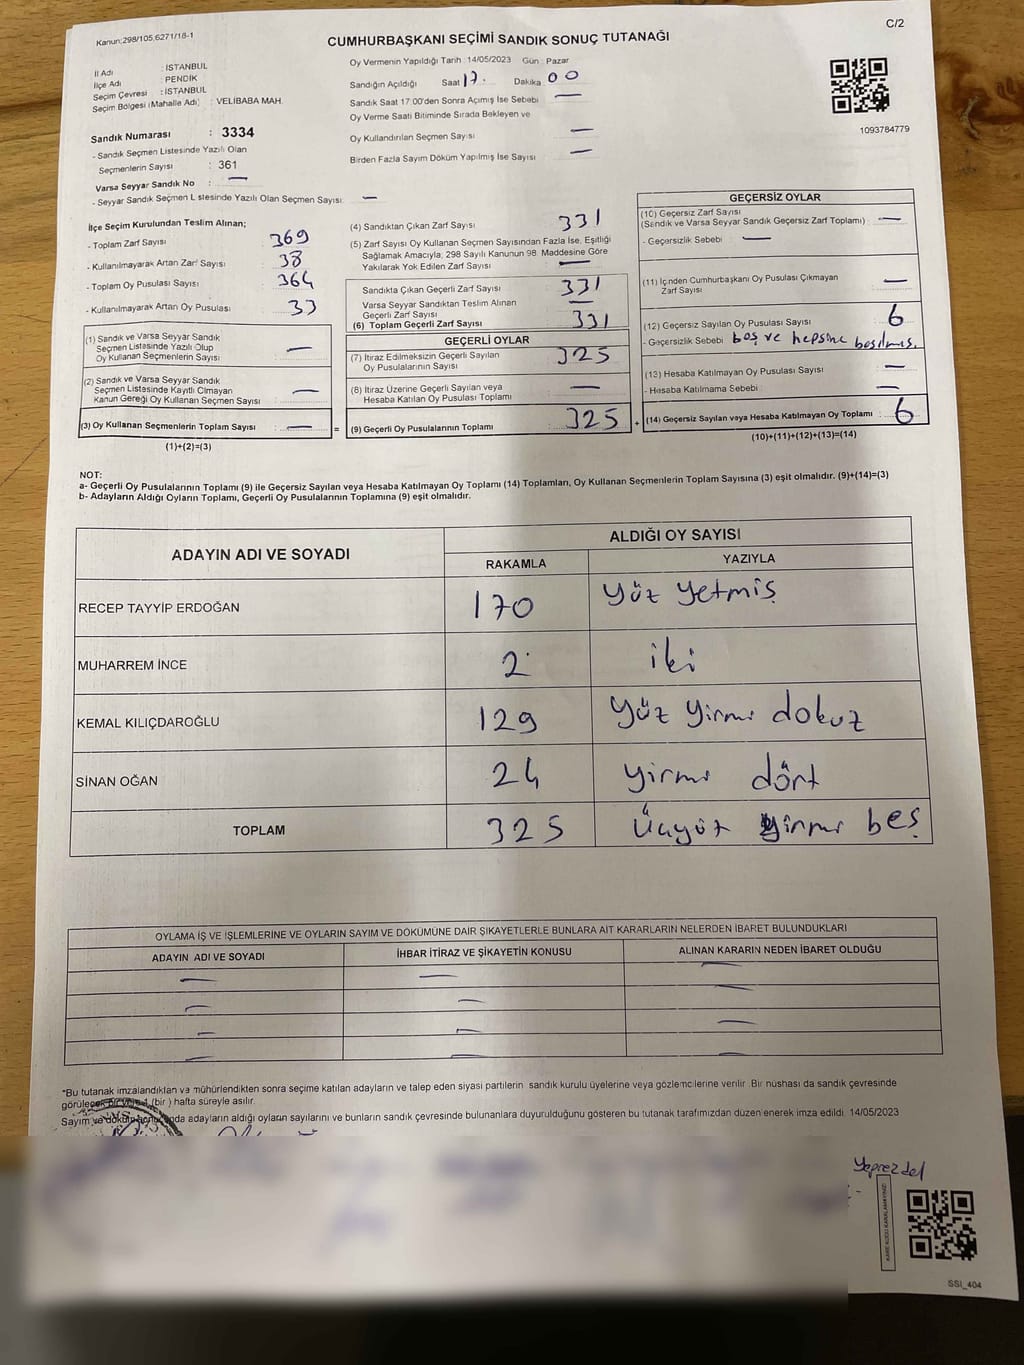 C/2
Kanun:298/105,6271/18-1
CUMHURBAŞKANI SEÇİMİ SANDIK SONUÇ TUTANAĞI
İl Adı : İSTANBUL
İlçe Adı : PENDİK
Seçim Çevresi : İSTANBUL
Seçim Bölgesi (Mahalle Adı) : VELİBABA MAH.
Oy Vermenin Yapıldığı Tarih :14/05/2023 Gün : Pazar
Sandığın Açıldığı Saat 17. Dakika 00
Sandık Saat 17:00'den Sonra Açımış İse Sebebi —
Oy Verme Saati Bitiminde Sırada Bekleyen ve
Oy Kullandırılan Seçmen Sayısı —
Birden Fazla Sayım Döküm Yapılmış İse Sayısı —
1093784779
Sandık Numarası : 3334
- Sandık Seçmen Listesinde Yazılı Olan
Seçmenlerin Sayısı : 361
Varsa Seyyar Sandık No : —
- Seyyar Sandık Seçmen Listesinde Yazılı Olan Seçmen Sayısı: —
İlçe Seçim Kurulundan Teslim Alınan;
- Toplam Zarf Sayısı 369
- Kullanılmayarak Artan Zarf Sayısı 38
- Toplam Oy Pusulası Sayısı 364
- Kullanılmayarak Artan Oy Pusulası 33
(1) Sandık ve Varsa Seyyar Sandık
Seçmen Listesinde Yazılı Olup
Oy Kullanan Seçmenlerin Sayısı —
(2) Sandık ve Varsa Seyyar Sandık
Seçmen Listesinde Kayıtlı Olmayan
Kanun Gereği Oy Kullanan Seçmen Sayısı —
(3) Oy Kullanan Seçmenlerin Toplam Sayısı — =
(1)+(2)=(3)
(4) Sandıktan Çıkan Zarf Sayısı 331
(5) Zarf Sayısı Oy Kullanan Seçmen Sayısından Fazla İse, Eşitliği
Sağlamak Amacıyla; 298 Sayılı Kanunun 98. Maddesine Göre
Yakılarak Yok Edilen Zarf Sayısı —
Sandıkta Çıkan Geçerli Zarf Sayısı 331
Varsa Seyyar Sandıktan Teslim Alınan
Geçerli Zarf Sayısı —
(6) Toplam Geçerli Zarf Sayısı 331
GEÇERLİ OYLAR
(7) İtiraz Edilmeksizin Geçerli Sayılan
Oy Pusulalarının Sayısı 325
(8) İtiraz Üzerine Geçerli Sayılan veya
Hesaba Katılan Oy Pusulası Toplamı —
(9) Geçerli Oy Pusulalarının Toplamı 325 +
GEÇERSİZ OYLAR
(10) Geçersiz Zarf Sayısı
(Sandık ve Varsa Seyyar Sandık Geçersiz Zarf Toplamı) —
- Geçersizlik Sebebi : —
(11) İçinden Cumhurbaşkanı Oy Pusulası Çıkmayan
Zarf Sayısı —
(12) Geçersiz Sayılan Oy Pusulası Sayısı 6
- Geçersizlik Sebebi boş ve hepsine basılmış.
(13) Hesaba Katılmayan Oy Pusulası Sayısı —
- Hesaba Katılmama Sebebi —
(14) Geçersiz Sayılan veya Hesaba Katılmayan Oy Toplamı : 6
(10)+(11)+(12)+(13)=(14)
NOT:
a- Geçerli Oy Pusulalarının Toplamı (9) ile Geçersiz Sayılan veya Hesaba Katılmayan Oy Toplamı (14) Toplamları, Oy Kullanan Seçmenlerin Toplam Sayısına (3) eşit olmalıdır. (9)+(14)=(3)
b- Adayların Aldığı Oyların Toplamı, Geçerli Oy Pusulalarının Toplamına (9) eşit olmalıdır.
ADAYIN ADI VE SOYADI ALDIĞI OY SAYISI
RAKAMLA YAZIYLA
RECEP TAYYİP ERDOĞAN 170 yüz yetmiş
MUHARREM İNCE 2 iki
KEMAL KILIÇDAROĞLU 129 yüz yirmi dokuz
SİNAN OĞAN 24 yirmi dört
TOPLAM 325 Üçyüz yirmi beş
OYLAMA İŞ VE İŞLEMLERİNE VE OYLARIN SAYIM VE DÖKÜMÜNE DAİR ŞİKAYETLERLE BUNLARA AİT KARARLARIN NELERDEN İBARET BULUNDUKLARI
ADAYIN ADI VE SOYADI İHBAR İTİRAZ VE ŞİKAYETİN KONUSU ALINAN KARARIN NEDEN İBARET OLDUĞU
— — —
— — —
— — —
— — —
*Bu tutanak imzalandıktan ve mühürlendikten sonra seçime katılan adayların ve talep eden siyasi partilerin sandık kurulu üyelerine veya gözlemcilerine verilir. Bir nüshası da sandık çevresinde
görülecek bir yere 1 (bir) hafta süreyle asılır.
Sayım ve döküm sonunda adayların aldığı oyların sayılarını ve bunların sandık çevresinde bulunanlara duyurulduğunu gösteren bu tutanak tarafımızdan düzenlenerek imza edildi. 14/05/2023
SSI_404